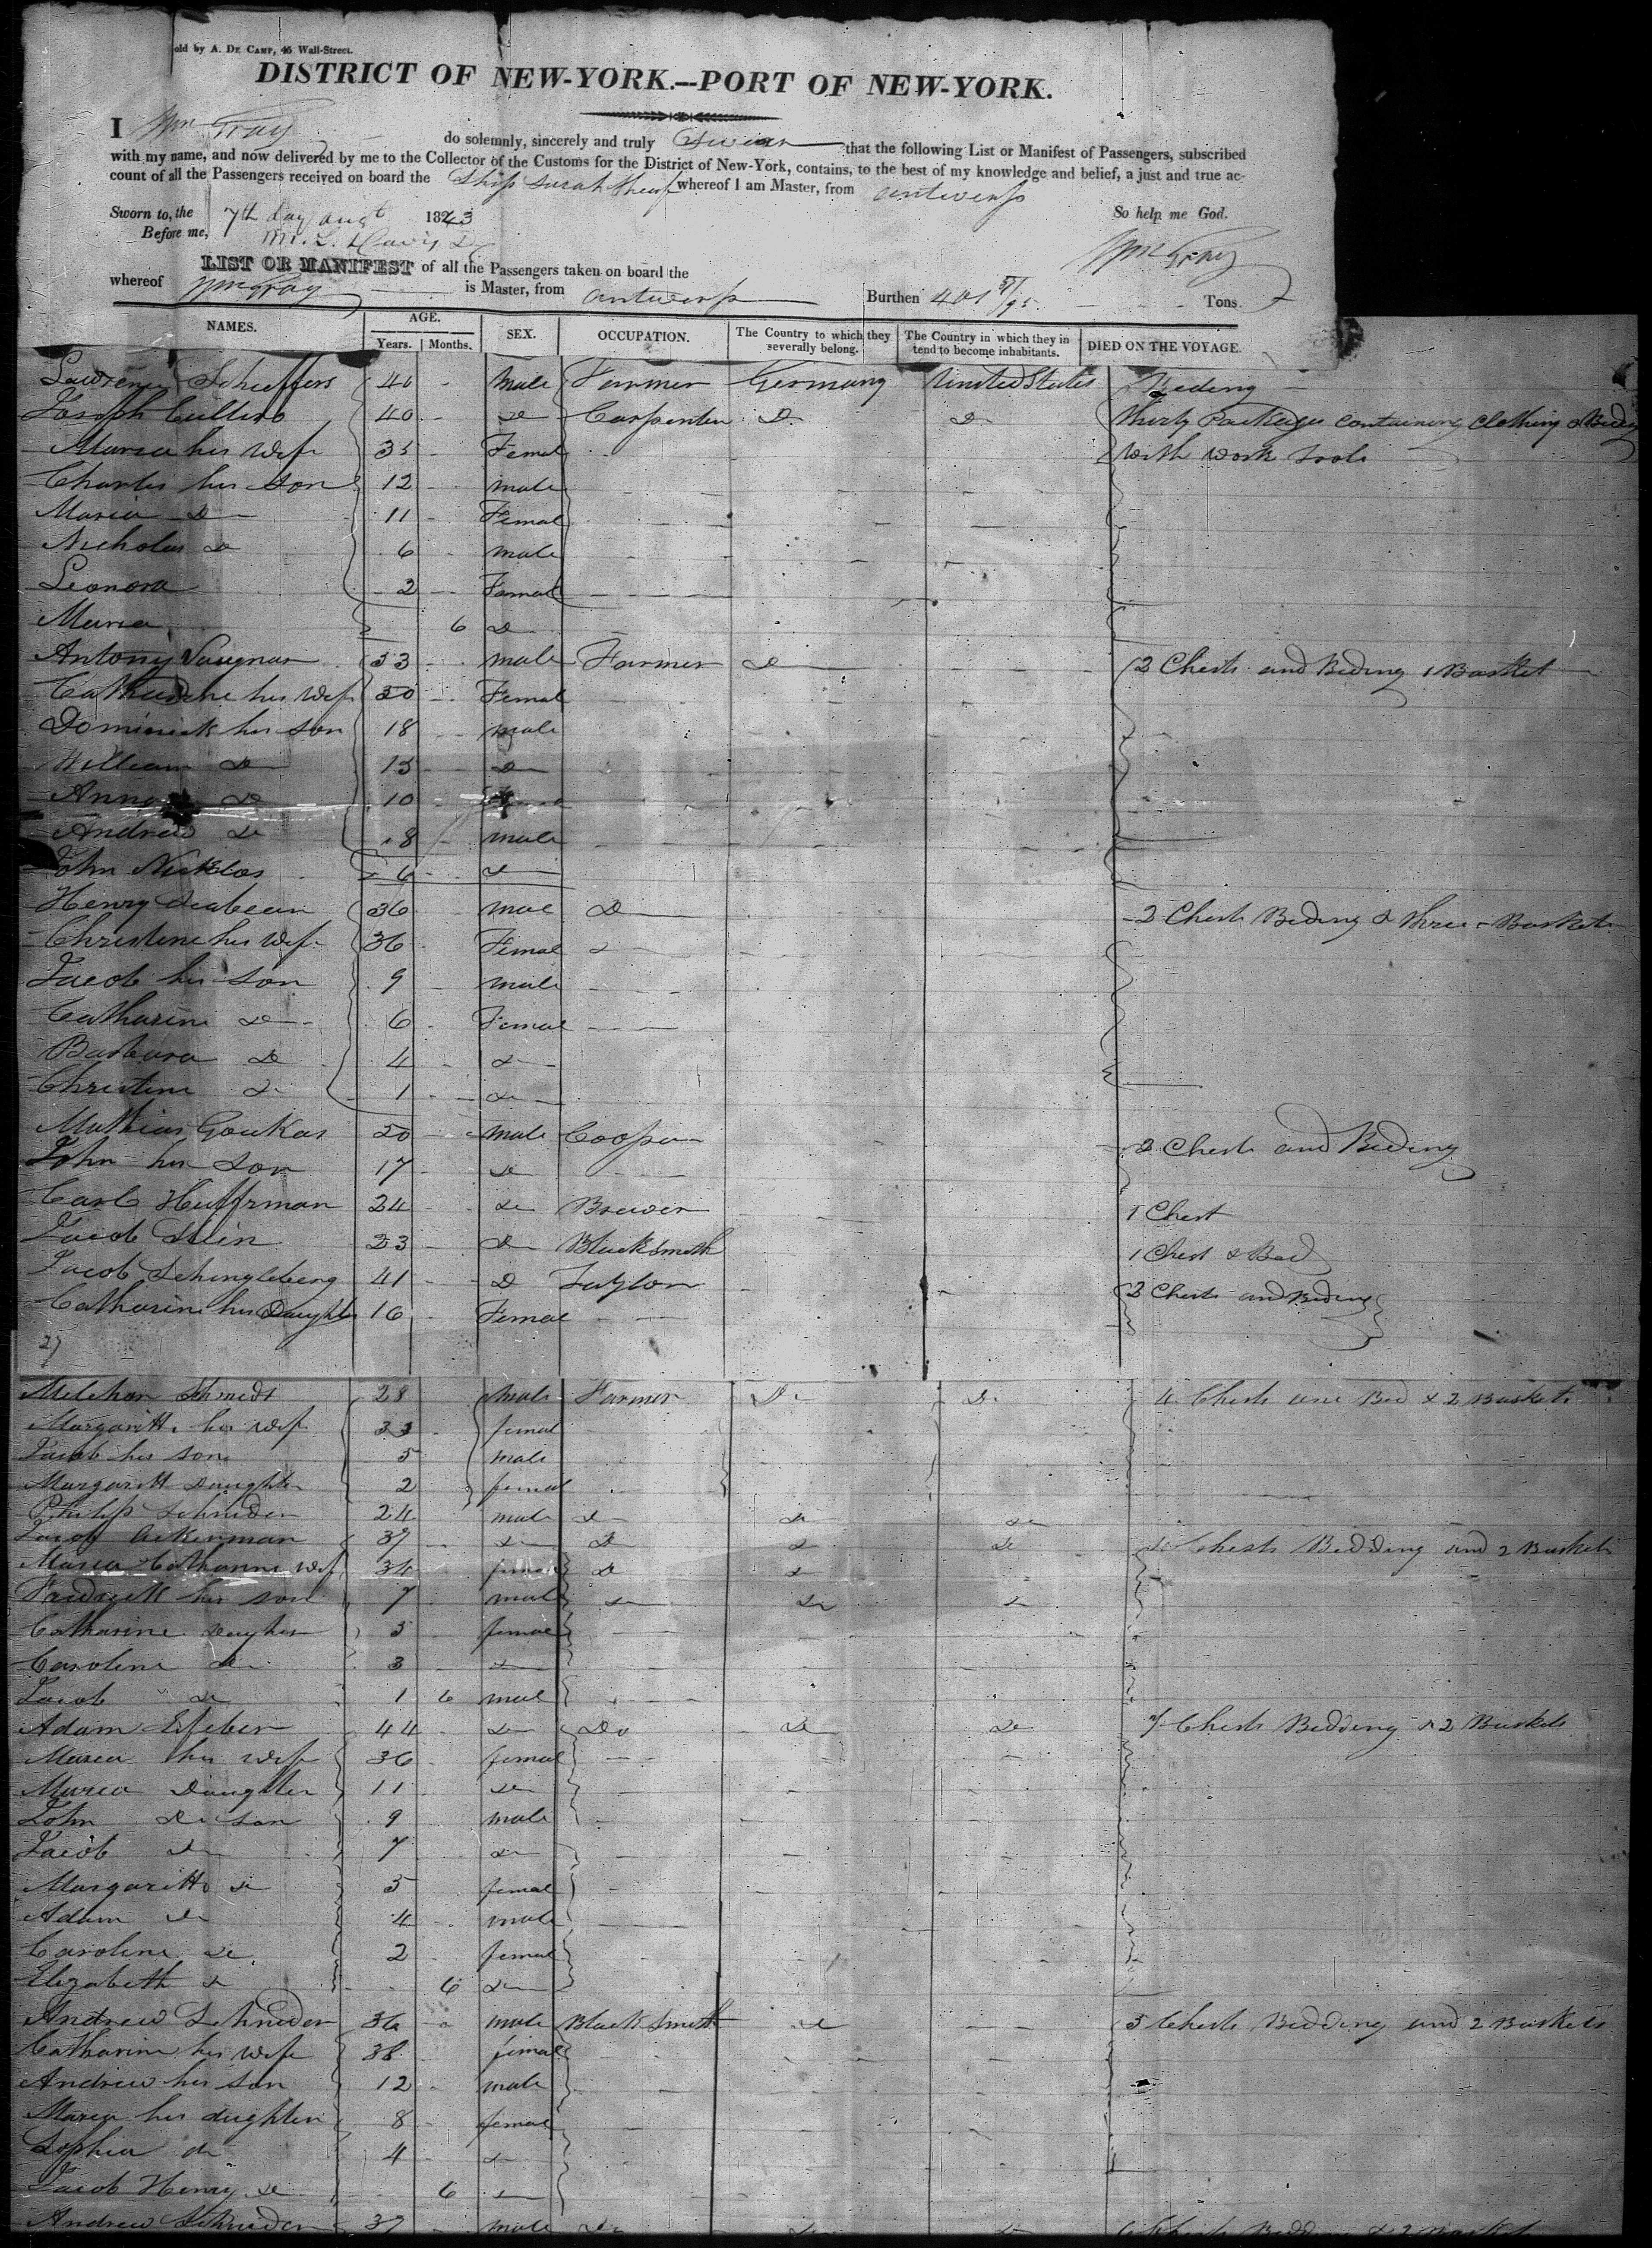 old by A. DE CAMP, 45 Wall-Street.
DISTRICT OF NEW-YORK.--PORT OF NEW-YORK.
I Wm Gray do solemnly, sincerely and truly Swear that the following List or Manifest of Passengers, subscribed
with my name, and now delivered by me to the Collector of the Customs for the District of New-York, contains, to the best of my knowledge and belief, a just and true ac-
count of all the Passengers received on board the Ship Sarah Sheaf whereof I am Master, from Antwerp
Sworn to, the 7th day augt 1843 So help me God.
Before me, M. L. Davis Wm Gray
LIST OR MANIFEST of all the Passengers taken on board the
whereof Wm Gray is Master, from antwerp Burthen 401 Tons.
NAMES. AGE. Years. Months. SEX. OCCUPATION. The Country to which they severally belong. The Country in which they intend to become inhabitants. DIED ON THE VOYAGE.
Lawrence Scheffers 40 - Male Farmer Germany United States Beding
Joseph 40 - Do Carpenter Do Do thirty Packages containing Clothing & Beding
Maria his Wife 35 - Femal with work tools
Charles his Son 12 - male
Maria Do 11 - Femal
Nicholas Do 6 - male
Leonora 2 - Femal
Maria 6 Do
Antony 53 male Farmer Do 2 Chests and Beding 1 Basket
his Wife 50 Femal
Dominick his Son 18 male
William Do 13 Do
Anna Do 10
Andrew Do 8 male
John Nicklas 6 Do
Henry 36 mal Do 2 Chests Beding & three Baskets
Christine his Wife 36 Femal Do
Jacob his Son 9 male
Catharine Do 6 Femal
Barbara Do 4 Do
Christine Do 1 Do
Mathias Goukas 50 male Cooper 2 Chests and Beding
John his Son 17 Do
Carl Huffrman 24 Do Brewer 1 Chest
Jacob Stein 23 Do Blacksmith 1 Chest & Bed
Jacob Schingleberg 41 Do Taylor 2 Chests and Beding
Catharine his Daughter 16 Femal
27
Melchor Schmidt 28 Male Farmer Do Do 4 Chests one Bed & 2 Baskets
Margaritta his wife 33 femal
Jacob his son 5 Male
Margaritt Daughter 2 femal
Philip Schnider 24 male Do Do Do
Jacob Ackerman 39 Do Do Do Do Chests Bedding and 2 Baskets
Maria Catharine wife 34 femal Do Do
Fredrick his son 7 male Do Do Do
Catharine Daughter 5 femal
Caroline Do 3 Do
Jacob Do 1 6 mal
Adam 44 Do Do Do Do 7 Chests Bedding & 2 Baskets
Maria his wife 36 femal
Maria Daughter 11 Do
John Do son 9 male
Jacob Do 7 Do
Margaritta Do 5 femal
Adam Do 4 male
Caroline Do 2 femal
Elizabeth Do 6 Do
Andrew Schnider 36 male Black Smith Do 5 Chests Bedding and 2 Baskets
Catharine his wife 38 femal
Andrew his son 12 male
Maria his dughter 8 femal
Sophia do 4 Do
Jacob Henry Do 6 Do
Andrew Schnider 37 male Do Do Do 6 Chests Bedding & 2 Baskets